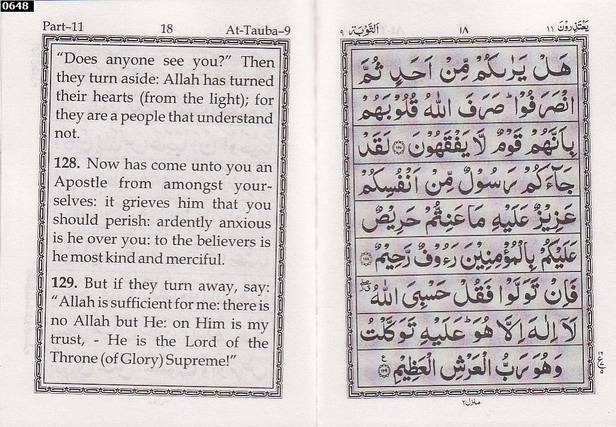 0648
Part–11 18 At-Tauba–9
“Does anyone see you?” Then
they turn aside: Allah has turned
their hearts (from the light); for
they are a people that understand
not.
128. Now has come unto you an
Apostle from amongst your-
selves: it grieves him that you
should perish: ardently anxious
is he over you: to the believers is
he most kind and merciful.
129. But if they turn away, say:
“Allah is sufficient for me: there is
no Allah but He: on Him is my
trust, - He is the Lord of the
Throne (of Glory) Supreme!”
التَّوْبَة ٩ ١٨ يَعْتَذِرُونَ ١١
هَلْ يَرٰىكُمْ مِّنْ اَحَدٍ ثُمَّ
انْصَرَفُوْا ؕ صَرَفَ اللّٰهُ قُلُوْبَهُمْ
بِاَنَّهُمْ قَوْمٌ لَّا يَفْقَهُوْنَ ﴿۱۲۷﴾ لَقَدْ
جَآءَكُمْ رَسُوْلٌ مِّنْ اَنْفُسِكُمْ
عَزِيْزٌ عَلَيْهِ مَا عَنِتُّمْ حَرِيْصٌ
عَلَيْكُمْ بِالْمُؤْمِنِيْنَ رَءُوْفٌ رَّحِيْمٌ ﴿۱۲۸﴾
فَاِنْ تَوَلَّوْا فَقُلْ حَسْبِيَ اللّٰهُ
لَاۤ اِلٰهَ اِلَّا هُوَ ؕ عَلَيْهِ تَوَكَّلْتُ
وَهُوَ رَبُّ الْعَرْشِ الْعَظِيْمِ ﴿۱۲۹﴾
منزل ٢